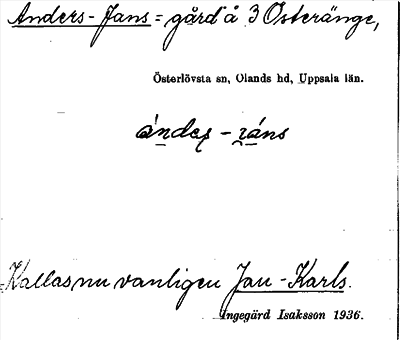 Anders-Jans = gård å 3 Österänge,
Österlövsta sn, Olands hd, Uppsala län.
Kallas nu vanligen Jan-Karls.
Ingegärd Isaksson 1936.